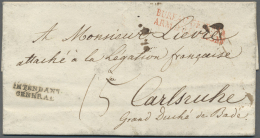 A Monsieur Lievre
attaché à la Légation française
15
Carlsruhe
Grand Duché de Bade
INTENDANT
GENERAL